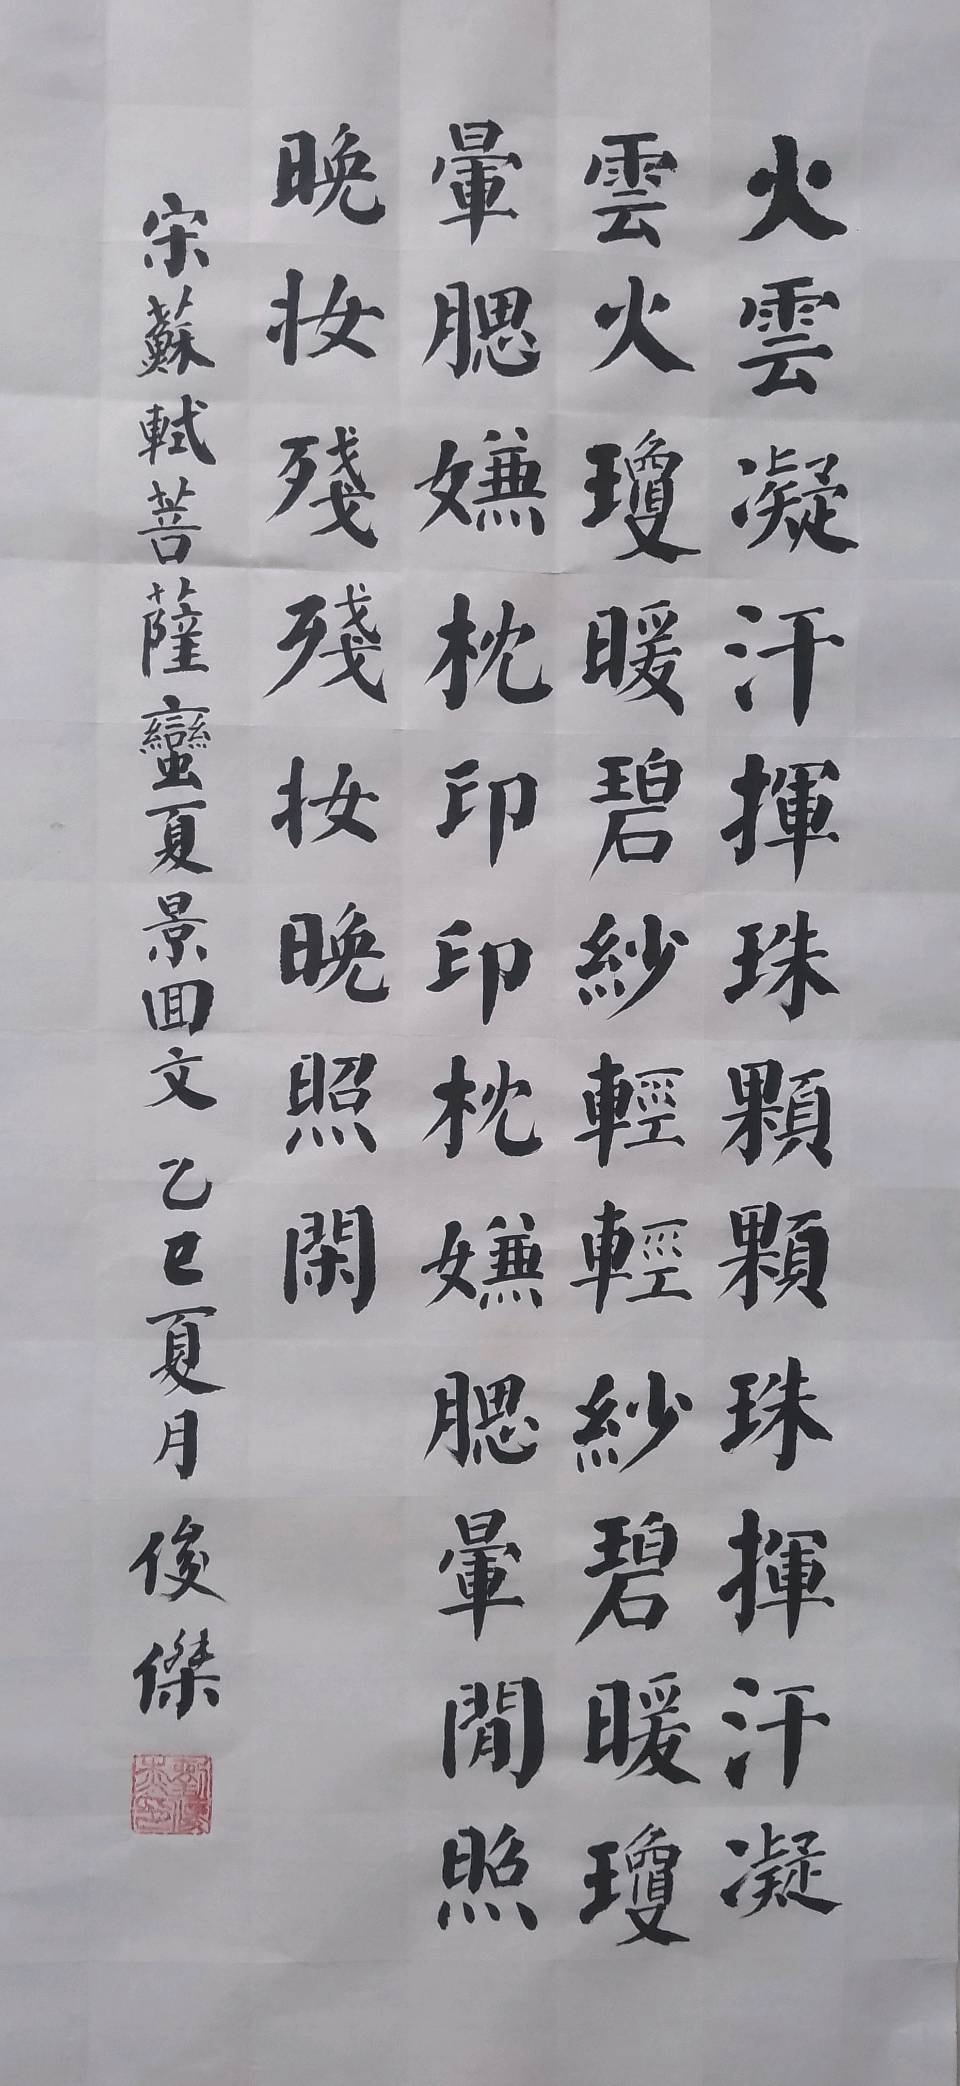 火雲凝汗揮珠顆顆珠揮汗凝
雲火瓊暖碧紗輕輕紗碧暖瓊
暈腮嫌枕印印枕嫌腮暈閒照
晚妝殘殘妝晚照閑
宋蘇軾菩薩蠻夏景回文乙巳夏月俊傑